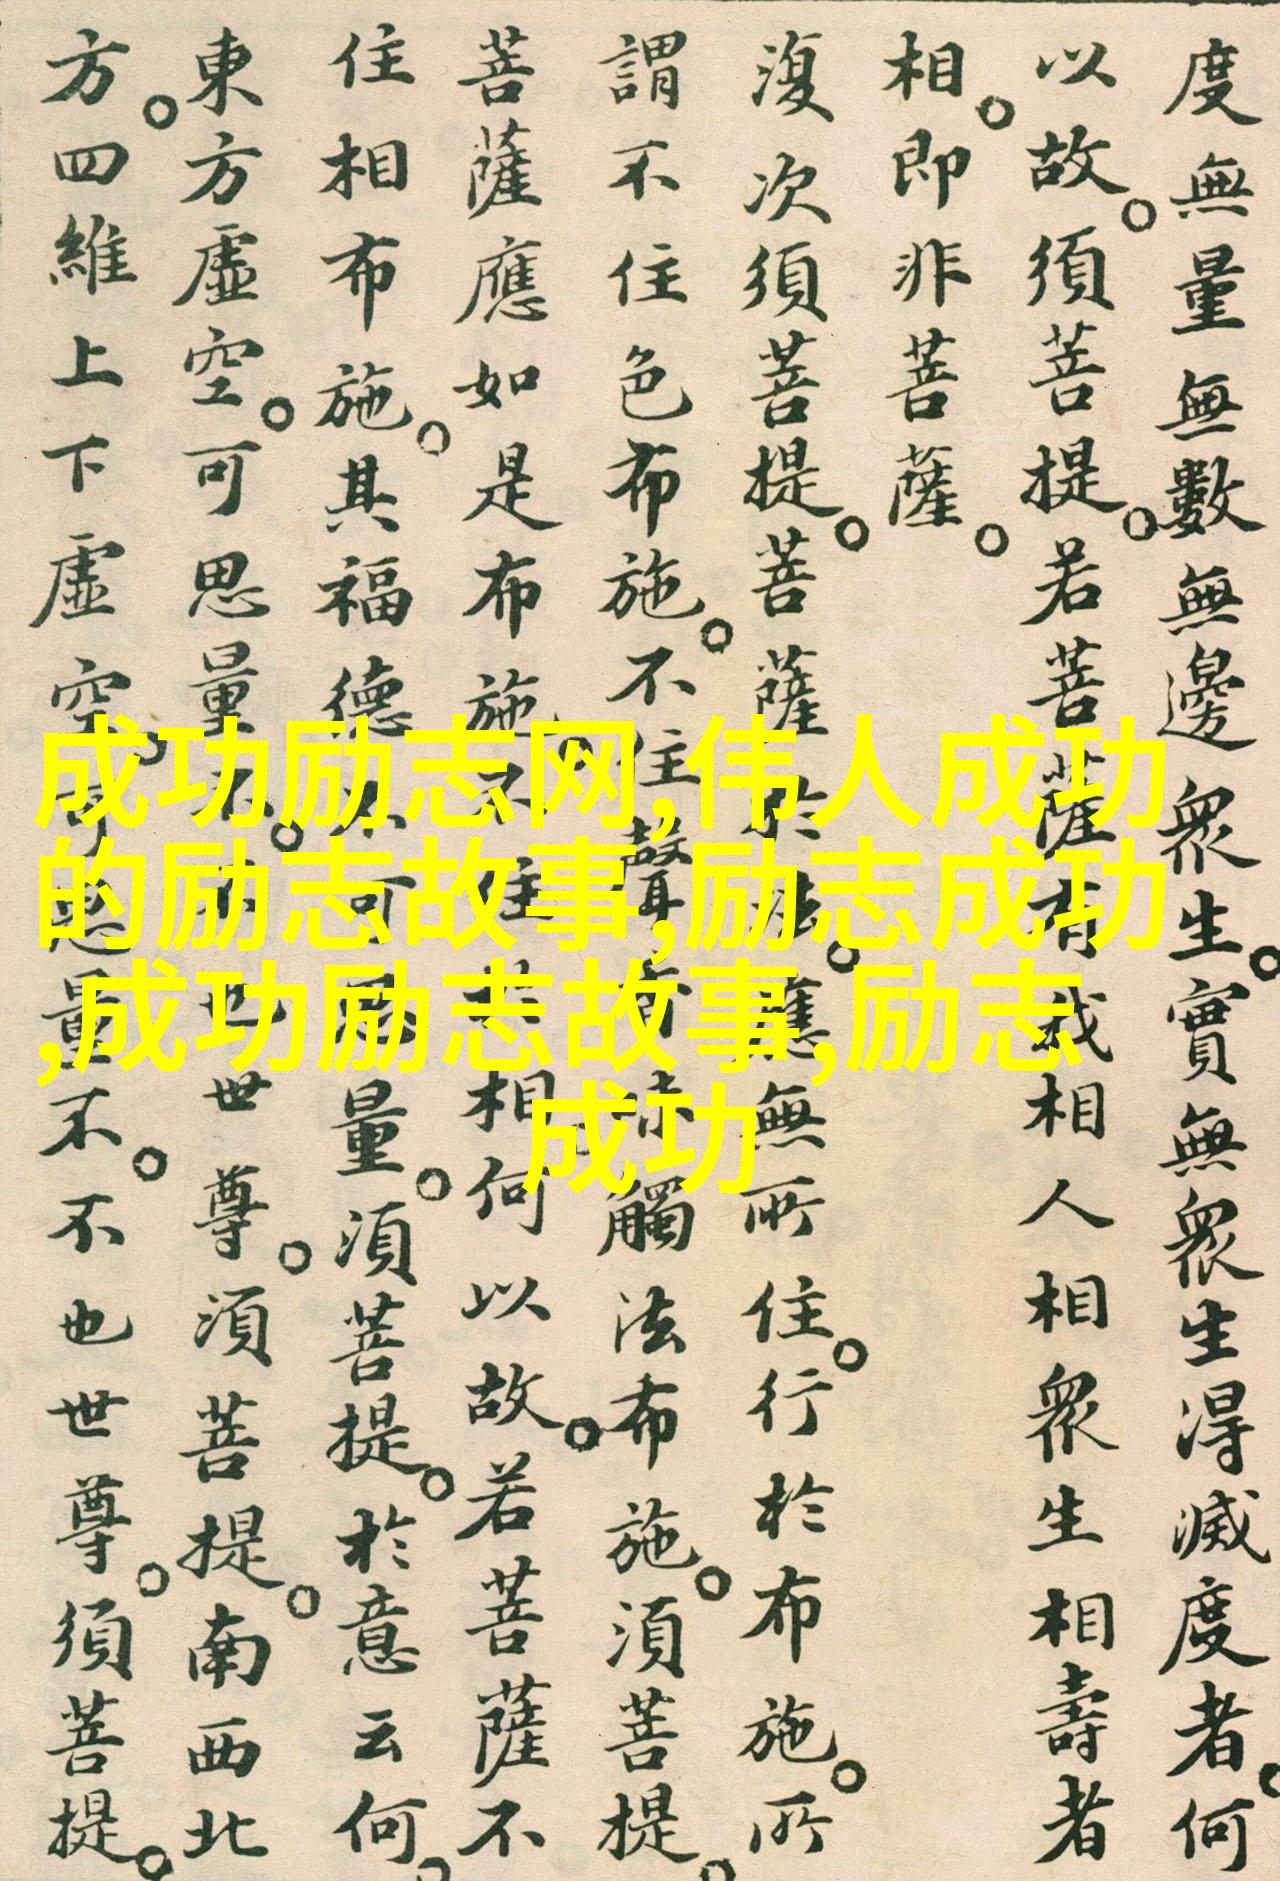 度無量無數無邊眾生。實無眾生得滅度者。何
以故。須菩提。若菩薩有我相人相眾生相壽者
相。即非菩薩。
復次須菩提。菩薩於法。應無所住。行於布施。所
謂不住色布施。不住聲香味觸法布施。須菩提。
菩薩應如是布施。不住於相。何以故。若菩薩不
住相布施。其福德不可思量。須菩提。於意云何。
東方虛空。可思量不。不也世尊。須菩提。南西北
方。四維上下虛空。可思量不。不也世尊。須菩提。
成功励志网,伟人成功
的励志故事,励志成功
,成功励志故事,励志
成功